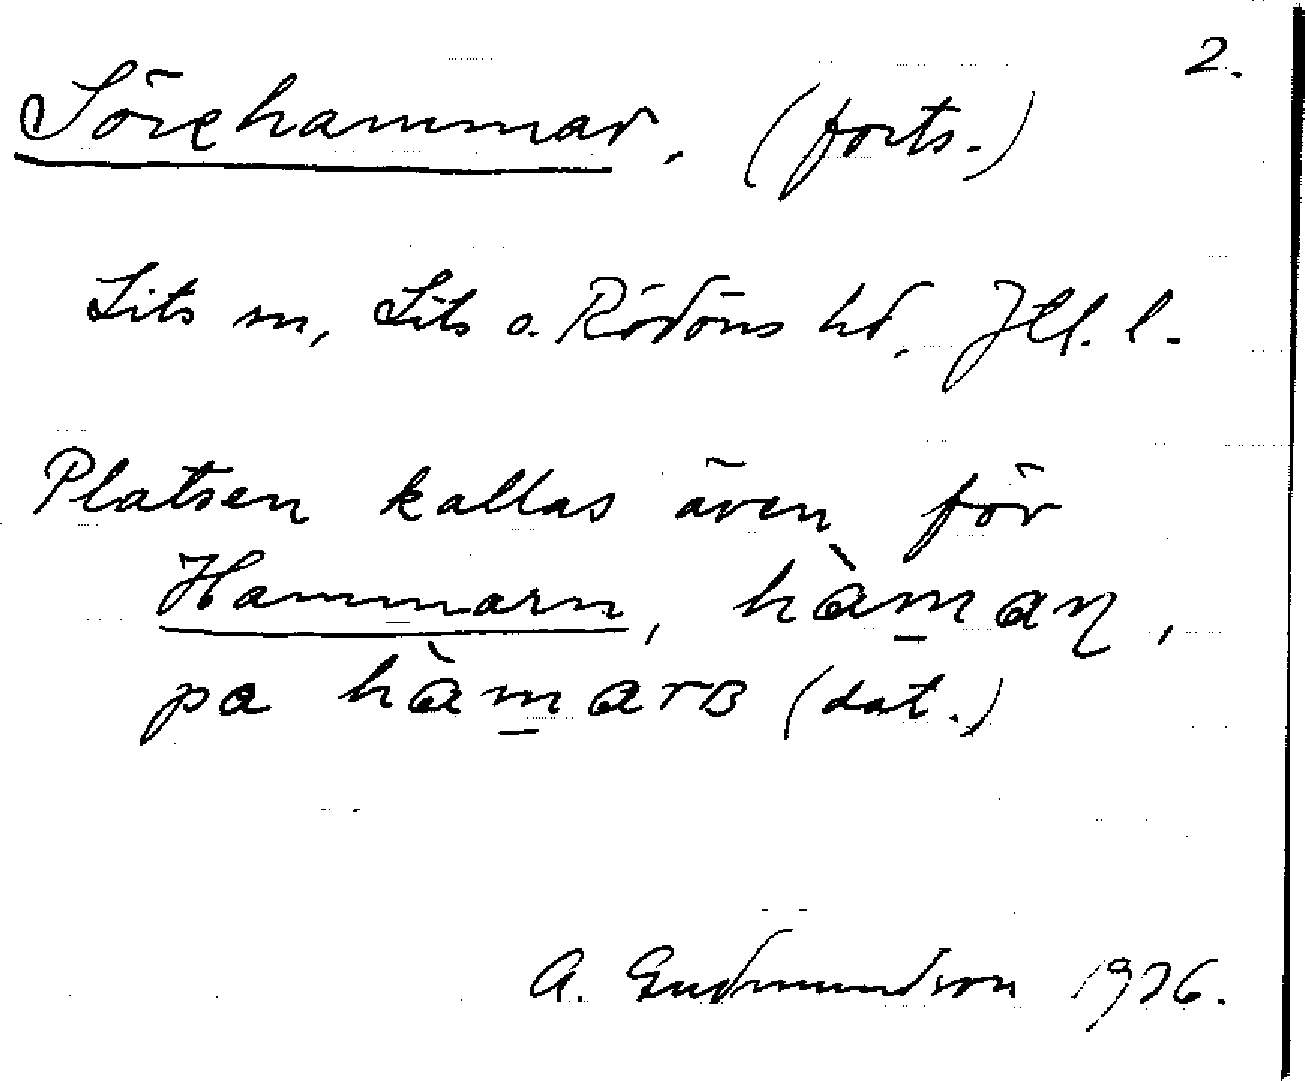 2.
Sörehammar, (forts.)
Lits sn, Lits o. Rödöns hd, Jtl. l.
Platsen kallas även för
Hammarn, hàm̱aɳ,
pa hàm̱arʙ (dat.)
A. Gudmundson 1926.